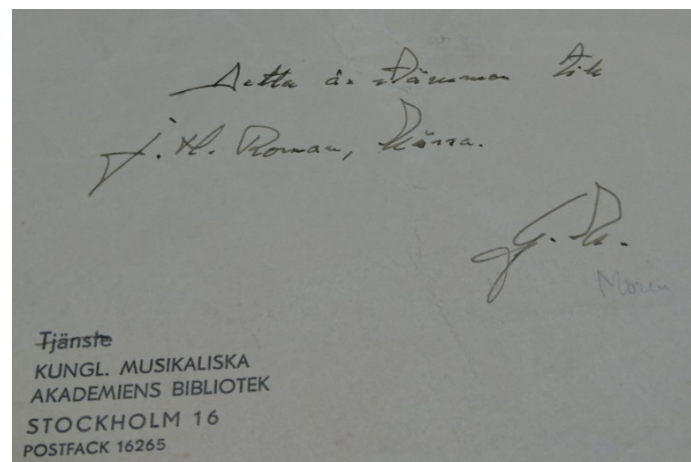 Detta är stämman till
J. H. Roman,
G. M.
Morin
Tjänste
KUNGL. MUSIKALISKA
AKADEMIENS BIBLIOTEK
STOCKHOLM 16
POSTFACK 16265